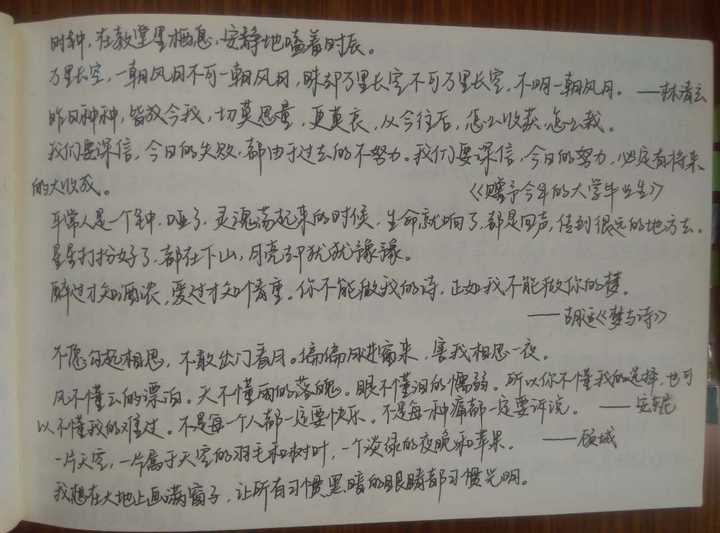 时钟,在教堂里栖息,安静地嗑着时辰。
万里长空,一朝风月不可一朝风月,昧却万里长空不可万里长空,不明一朝风月。 ——林清玄
昨日种种,皆成今我,切莫思量,更莫哀,从今往后,怎么收获,怎么栽。
我们要深信,今日的失败,都由于过去的不努力。我们要深信,今日的努力,必定有将来
的大收成。 《赠予今年的大学毕业生》
平常人是一个钟,哑了,灵魂荡起来的时候,生命就响了,都是回声,传到很远的地方去。
星星打扮好了,都在下山,月亮却犹犹豫豫。
醉过才知酒浓,爱过才知情重。你不能做我的诗,正如我不能做你的梦。
——胡适《梦与诗》
不愿勾起相思,不敢出门看月。偏偏月进窗来,害我相思一夜。
风不懂云的漂泊,天不懂雨的落魄。眼不懂泪的懦弱。所以你不懂我的选择,也可
以不懂我的难过。不是每一个人都一定要快乐。不是每一种痛都一定要诉说。 ——安东尼
一片天空,一片属于天空的羽毛和树叶,一个淡绿的夜晚和苹果。 ——顾城
我想在大地上画满窗子,让所有习惯黑暗的眼睛都习惯光明。